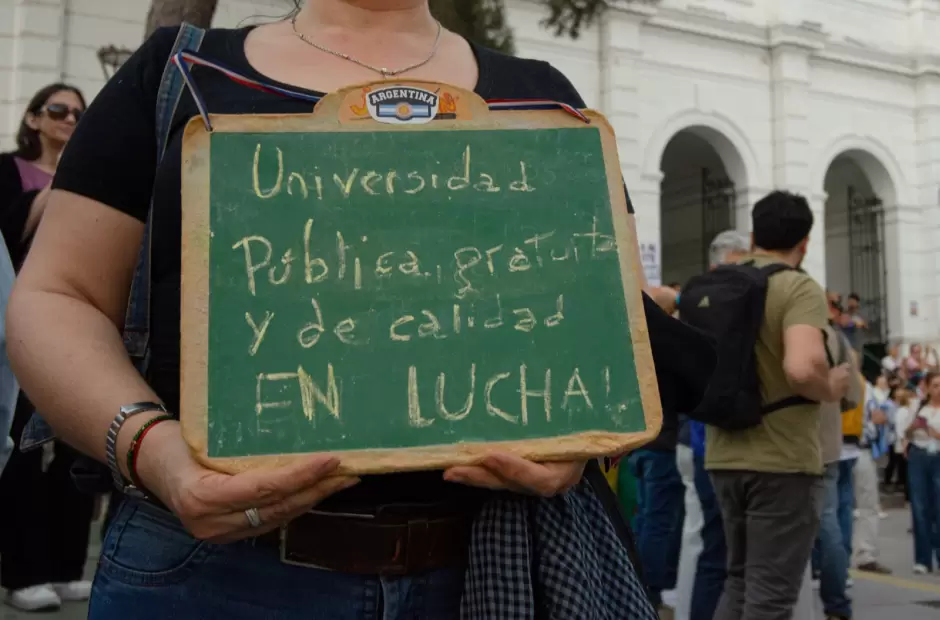 ARGENTINA
Universidad
Pública, gratuita
y de calidad
EN LUCHA!